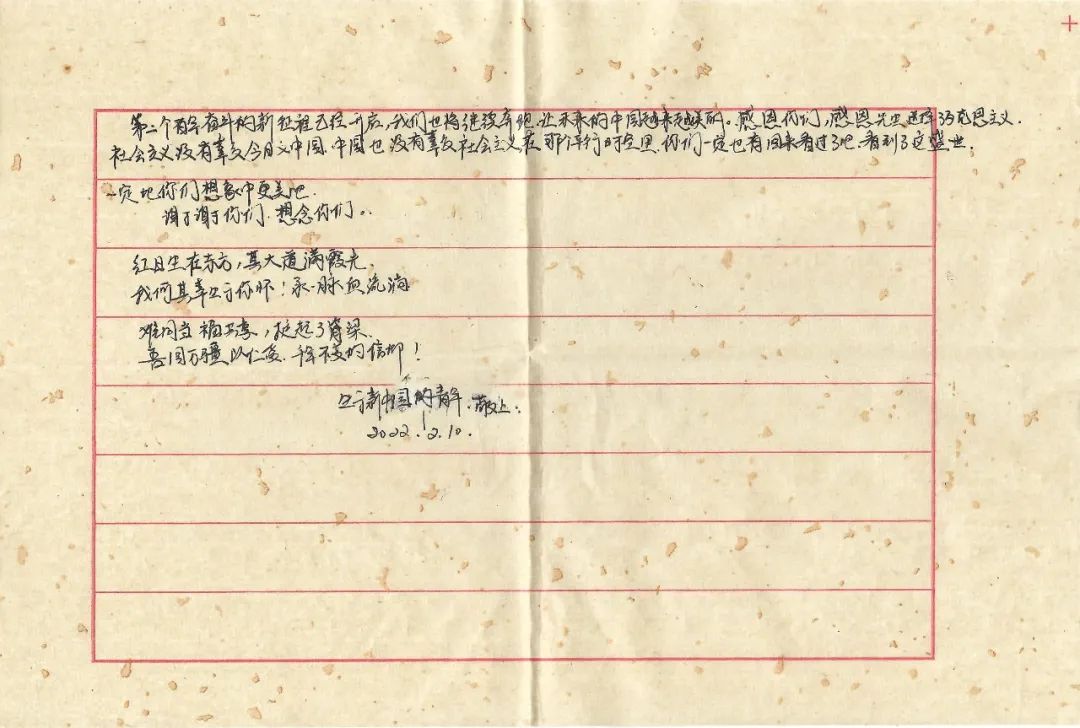 第二个百年奋斗的新征程已经开启,我们也将继续奔跑,让未来的中国越来越美丽。感恩你们,感恩先生选择马克思主义.
社会主义没有辜负今日之中国.中国也没有辜负社会主义.在那平行时空里,你们一定也有回来看过了吧.看到了这盛世.
一定比你们想象中更美吧.
谢谢你们.想念你们..
红日生在东方,其大道满霞光.
我何其幸生于你怀!承一脉血流淌
难同当福共享,挺起了脊梁.
吾国万疆以仁爱.千年不变的信仰!
生于新中国的青年.敬上.
2022.12.10.